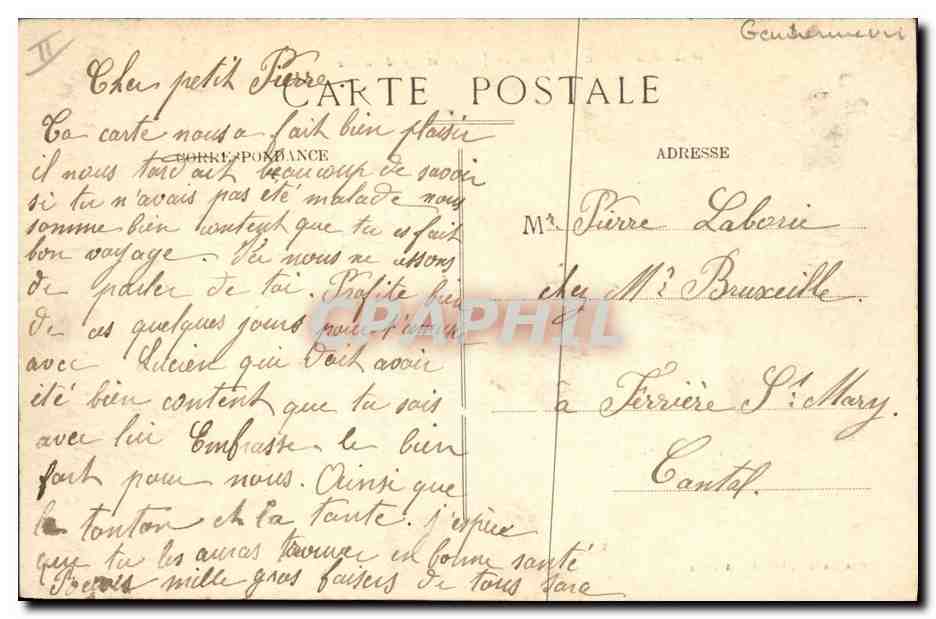 II
Gendarmerie
Cher petit Pierre
CARTE POSTALE
CORRESPONDANCE
ADRESSE
Ta carte nous a fait bien plaisir
il nous tardait beaucoup de savoir
si tu n'avais pas été malade nous
somme bien content que tu es fait
bon voyage. Tu nous ne cessons
de parler de toi. Profite bien
de ces quelques jours pour t'amuser
avec Lucien qui doit avoir
été bien content que tu sois
avec lui Embrasse le bien
fort pour nous. Ainsi que
le tonton et la tante. j'espère
que tu les auras trouver en bonne santé
mille gros baisers de tous
Mr. Pierre Laborie
chez Mr Bruxeille.
à Ferrière St. Mary.
Cantal.
CPAPHIL